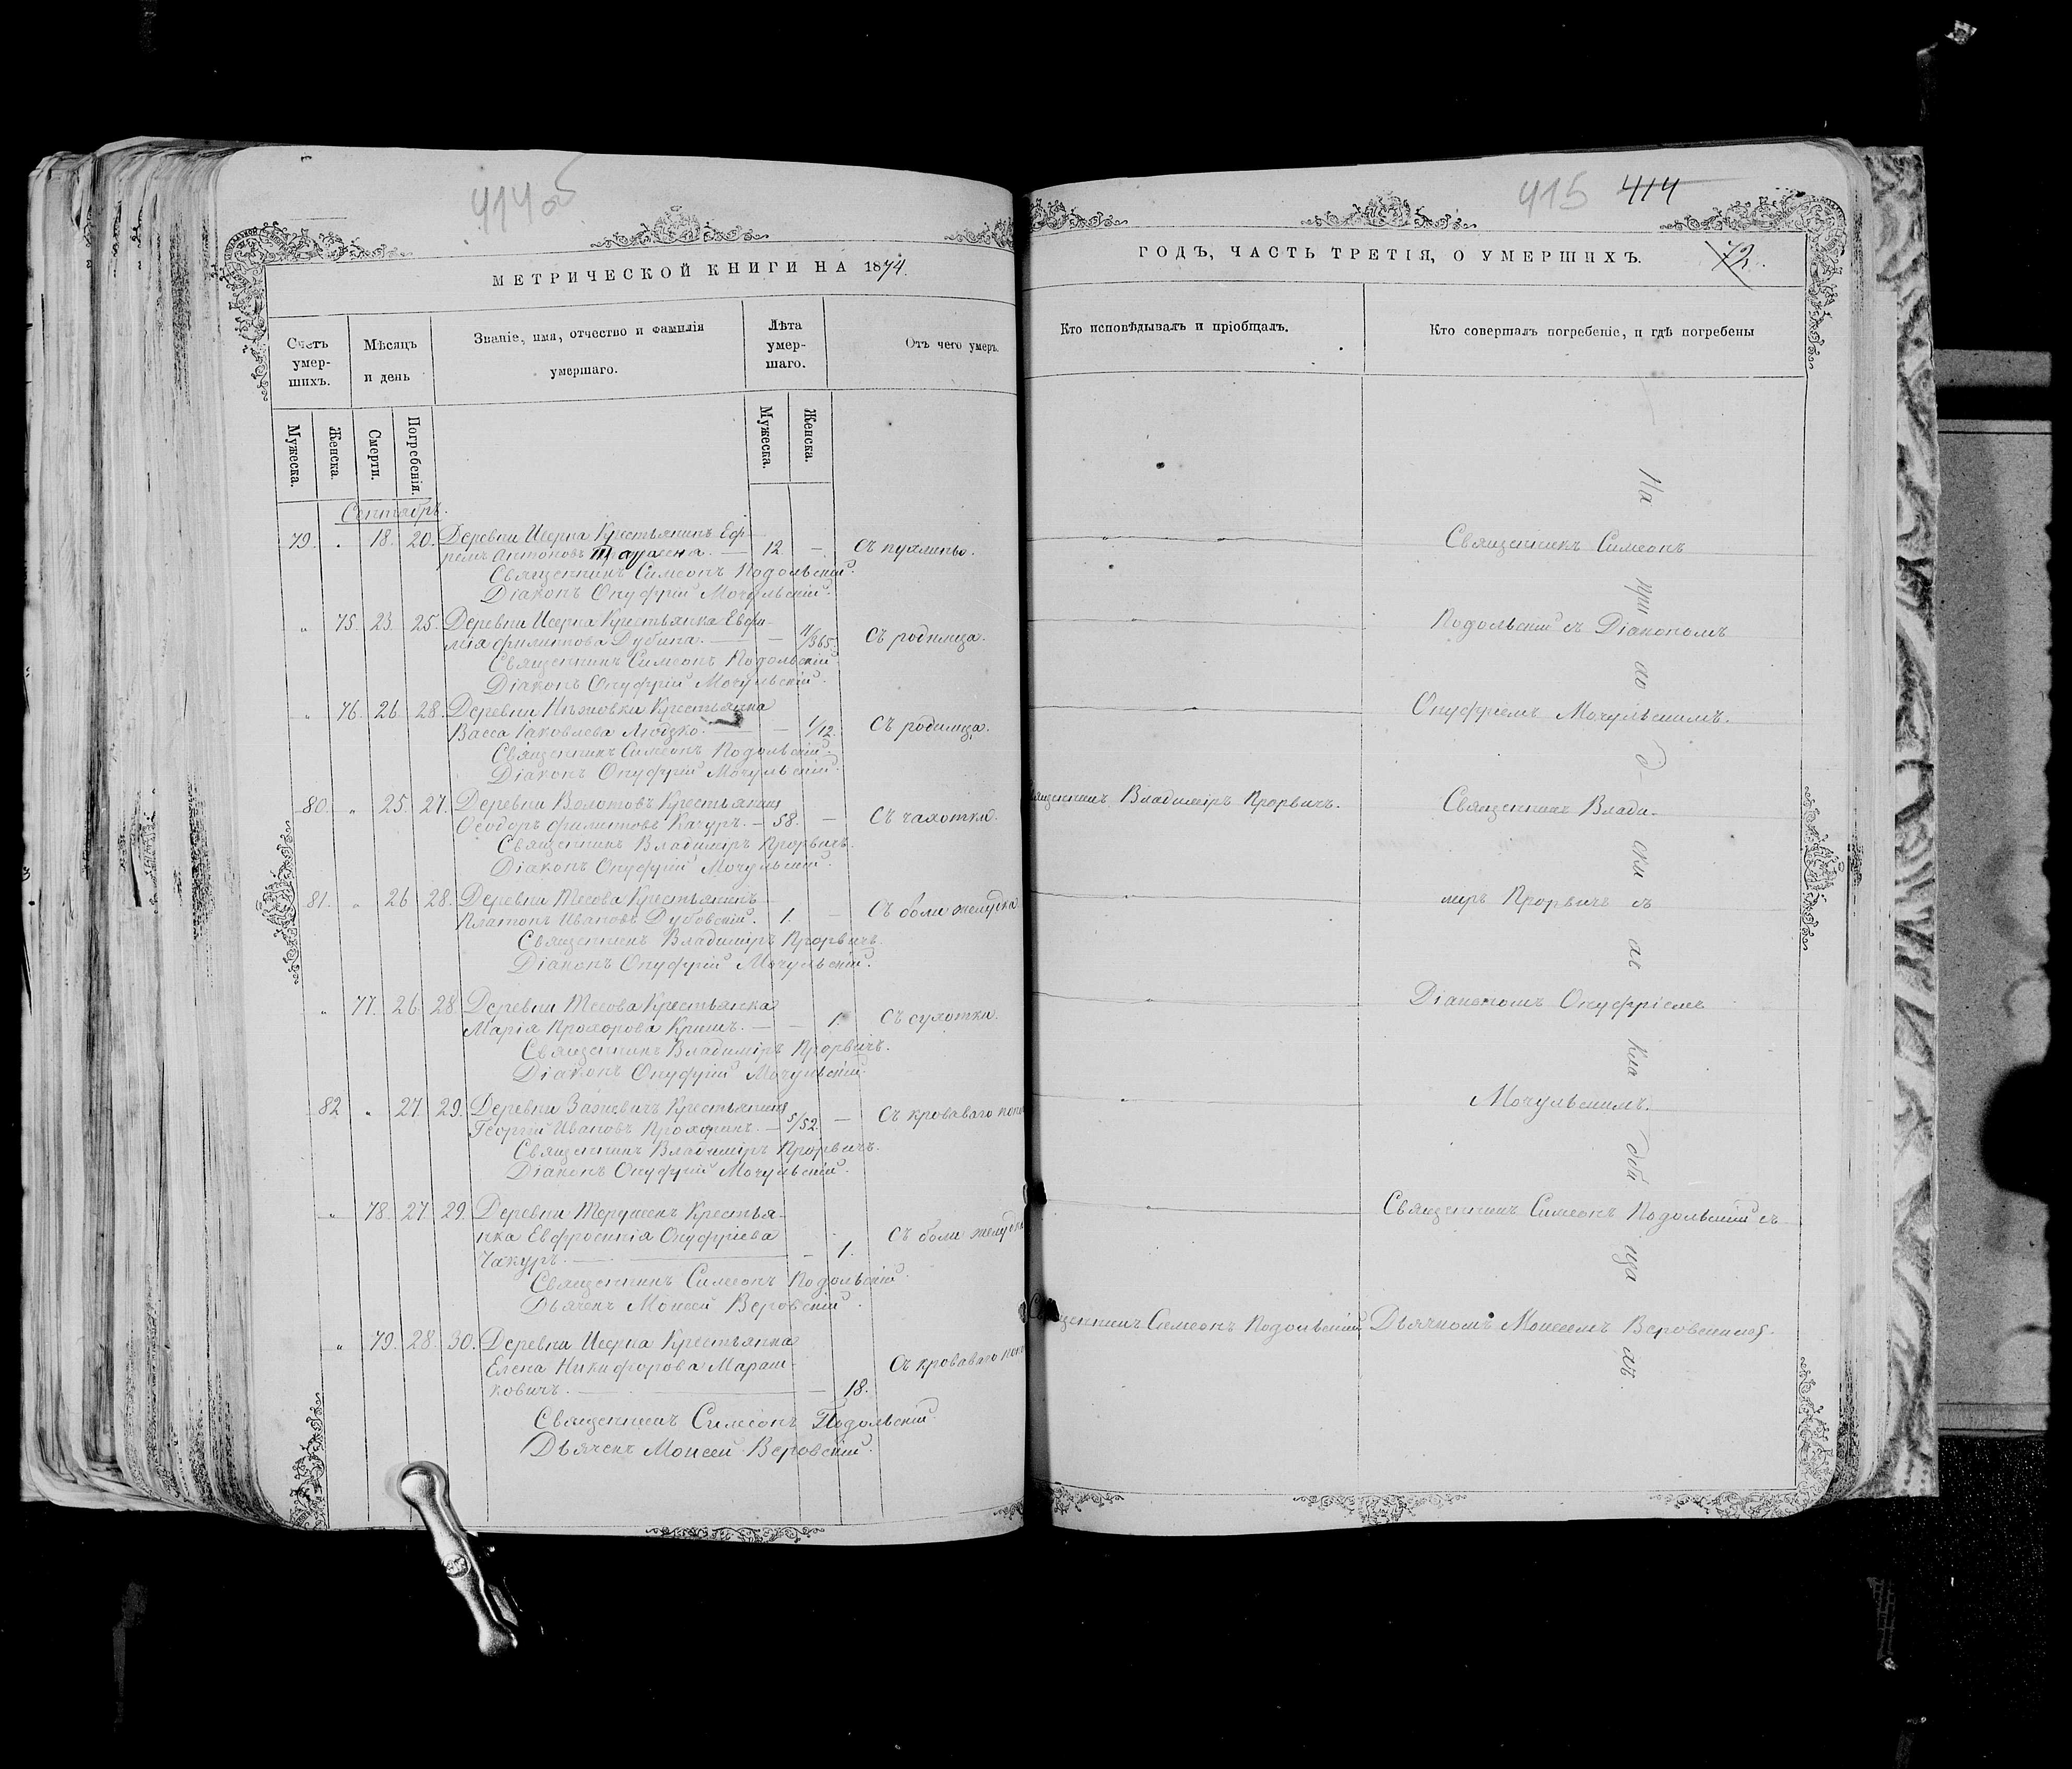 414 об
МЕТРИЧЕСКОЙ КНИГИ НА 1874.
Счетъ умер-шихъ.
Мѣсяцъ и день
Званіе, имя, отчество и фамилія умершаго.
Лѣта умер-шаго.
Отъ чего умеръ.
Мужеска.
Женска.
Смерти.
Погребенія.
Мужеска.
Женска.
Сентябрь.
79. " 18. 20. Деревни Исерна Крестьянинъ Еф-
ремъ Антоновъ — 12. — Съ пухлины.
Священникъ Симеонъ Подольскій.
Діаконъ Онуфрій Мочульскій.
" 75. 23. 25. Деревни Исерна Крестьянка Евфи-
мія Филиппова Дубина. — — 11/365. Съ родимца.
Священникъ Симеонъ Подольскій.
Діаконъ Онуфрій Мочульскій.
" 76. 26. 28. Деревни Нѣжовки Крестьянка
Васса Іаковлева Людзко. — — 1/12. Съ родимца.
Священникъ Симеонъ Подольскій.
Діаконъ Онуфрій Мочульскій.
80. " 25. 27. Деревни Болотовъ Крестьянинъ
Ѳеодоръ Филипповъ Качуръ. — 58. — Съ чахотки.
Священникъ Владиміръ Прорвичъ.
Діаконъ Онуфрій Мочульскій.
81. " 26. 28. Деревни Тесова Крестьянинъ
Платонъ Ивановъ Дубовскій. 1. — Съ боли желудка
Священникъ Владиміръ Прорвичъ.
Діаконъ Онуфрій Мочульскій.
" 77. 26. 28. Деревни Тесова Крестьянка
Марія Прохорова Кришъ. — — 1. Съ сухотки.
Священникъ Владиміръ Прорвичъ.
Діаконъ Онуфрій Мочульскій.
82. " 27. 29. Деревни Заževичъ Крестьянинъ
Георгій Ивановъ Прохоринъ. — 5/52. — Съ кроваваго
Священникъ Владиміръ Прорвичъ.
Діаконъ Онуфрій Мочульскій.
" 78. 27. 29. Деревни Терушекъ Крестья-
нка Евфросинія Онуфріева
Чакуръ. — — 1. Съ боли желудка
Священникъ Симеонъ Подольскій.
Дьячекъ Моисей Веровскій.
" 79. 28. 30. Деревни Исерна Крестьянка
Елена Никифорова Мараш-
ковичъ. — — 18. Съ кроваваго
Священникъ Симеонъ Подольскій
Дьячекъ Моисей Веровскій.
415 414
ГОДЪ, ЧАСТЬ ТРЕТІЯ, О УМЕРШИХЪ.
72.
Кто исповѣдывалъ и пріобщалъ.
Кто совершалъ погребеніе, и гдѣ погребены
Священникъ Симеонъ
Подольскій съ Діакономъ
Онуфріемъ Мочульскимъ.
Священникъ Владиміръ Прорвичъ.
Священникъ Влади-
миръ Прорвичъ съ
Діакономъ Онуфріемъ
Мочульскимъ.
Священникъ Симеонъ Подольскій съ
Священникъ Симеонъ Подольскій
Дьячкомъ Моисеемъ Веровскимъ.
На при хо д- ски хъ кла дби ща хъ.